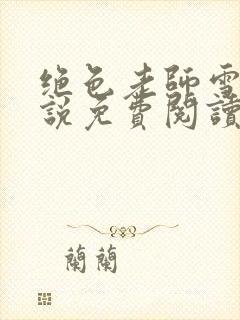 绝色老师雪
說免費閱讀
蘭蘭